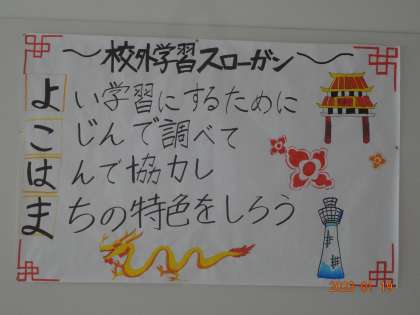 ～校外学習スローガン～
よい学習にするために
こじんで調べて
はんで協力し
まちの特色をしろう